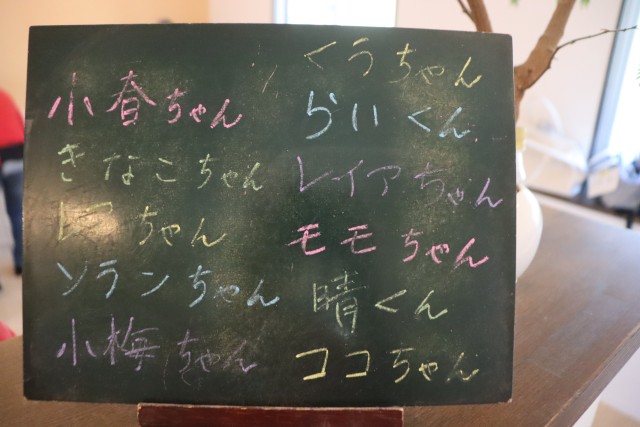 小春ちゃん
きなこちゃん
レアちゃん
ソランちゃん
小梅ちゃん
くうちゃん
らいくん
レイアちゃん
モモちゃん
晴くん
ココちゃん